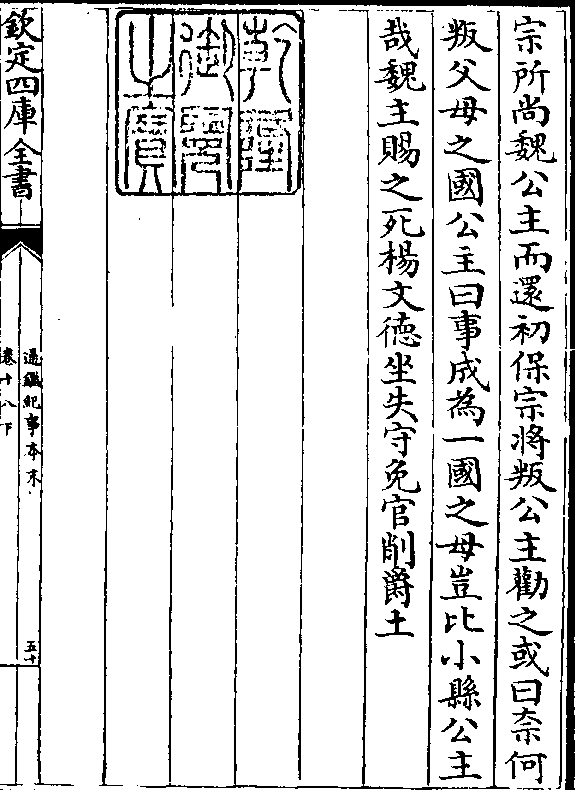 宗所尚魏公主而還初保宗將叛公主勸之或曰柰何
叛父母之國公主曰事成為一國之母豈比小縣公主
哉魏主賜之死楊文德坐失守免官削爵土
乾隆
御覽
之寶
欽定四庫全書
通鑑紀事本末
卷十八下
五十